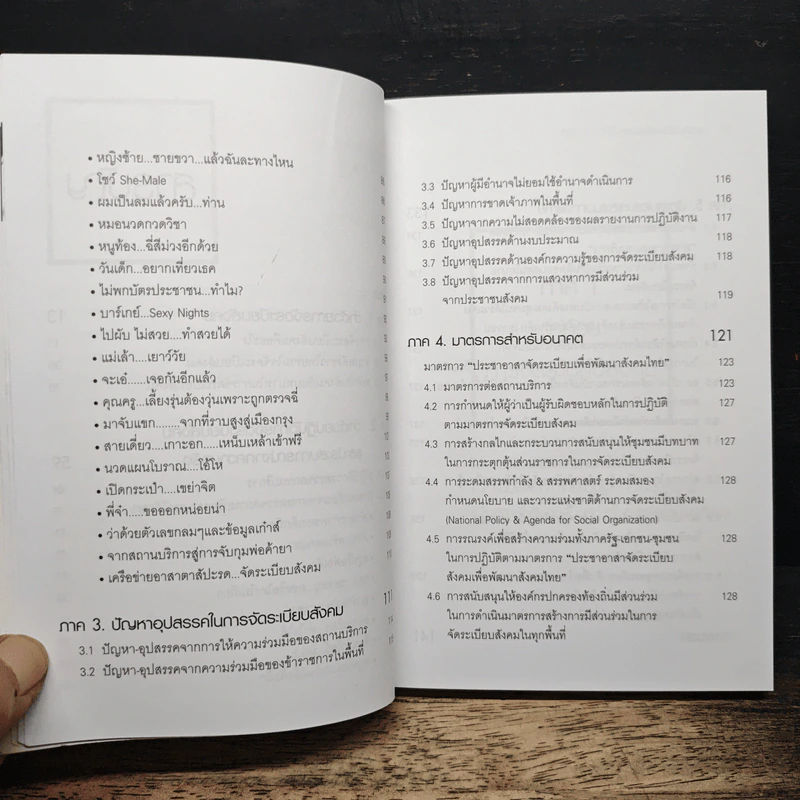 • หญิงซ้าย...ชายขวา...แล้วฉันละทางไหน
• โชว์ She-Male
• ผมเป็นลมแล้วครับ...ท่าน
• หมอนวดกวดวิชา
• หนูท้อง...ฉี่สีม่วงอีกด้วย
• วันเด็ก...อยากเที่ยวเธค
• ไม่พกบัตรประชาชน...ทำไม?
• บาร์เกย์...Sexy Nights
• ไปผับ ไม่สวย....ทำสวยได้
• แม่เล้า....เยาว์วัย
• จะเอ๋.....เจอกันอีกแล้ว
• คุณครู...เลี้ยงรุ่นต้องวุ่นเพราะถูกตรวจฉี่
• มาจับแขก........จากที่ราบสูงสู่เมืองกรุง
• สายเดี่ยว....เกาะอก....หนีบเหล้าเข้าฟรี
• นวดแผนโบราณ...โอ้โห
• เปิดกระเป๋า...เขย่าจิต
• พี่จ๋า....ขอออกหน่อยน่า
• ว่าด้วยตัวเลขกลมๆและข้อมูลเก๋าส์
• จากสถานบริการสู่การจับกุมพ่อค้ายา
• เครือข่ายอาสาตาสัปะรด...จัดระเบียบสังคม
ภาค 3. ปัญหาอุปสรรคในการจัดระเบียบสังคม
3.1 ปัญหา-อุปสรรคจากการให้ความร่วมมือของสถานบริการ
3.2 ปัญหา-อุปสรรคจากความร่วมมือของข้าราชการในพื้นที่
3.3 ปัญหาผู้มีอำนาจไม่ยอมใช้อำนาจดำเนินการ 116
3.4 ปัญหาการขาดเจ้าภาพในพื้นที่ 116
3.5 ปัญหาจากความไม่สอดคล้องของผลรายงานการปฏิบัติงาน 117
3.6 ปัญหาอุปสรรคด้านงบประมาณ 118
3.7 ปัญหาอุปสรรคด้านองค์กรความรู้ของการจัดระเบียบสังคม 118
3.8 ปัญหาอุปสรรคจากการแสวงหาการมีส่วนร่วม
จากประชาชนสังคม 119
ภาค 4. มาตรการสำหรับอนาคต 121
มาตรการ “ประชาอาสาจัดระเบียบเพื่อพัฒนาสังคมไทย” 123
4.1 มาตรการต่อสถานบริการ 123
4.2 การกำหนดให้ผู้ว่าเป็นผู้รับผิดชอบหลักในการปฏิบัติ 127
ตามมาตรการจัดระเบียบสังคม
4.3 การสร้างกลไกและกระบวนการสนับสนุนให้ชุมชนมีบทบาท 127
ในการกระตุกตุ้นส่วนราชการในการจัดระเบียบสังคม
4.4 การระดมสรรพกำลัง & สรรพศาสตร์ ระดมสมอง 128
กำหนดนโยบาย และวาระแห่งชาติด้านการจัดระเบียบสังคม
(National Policy & Agenda for Social Organization)
4.5 การรณรงค์เพื่อสร้างความร่วมทั้งภาครัฐ-เอกชน-ชุมชน 128
ในการปฏิบัติตามมาตรการ “ประชาอาสาจัดระเบียบ
สังคมเพื่อพัฒนาสังคมไทย”
4.6 การสนับสนุนให้องค์กรปกครองท้องถิ่นมีส่วนร่วม 128
ในการดำเนินมาตรการสร้างการมีส่วนร่วมในการ
จัดระเบียบสังคมในทุกพื้นที่